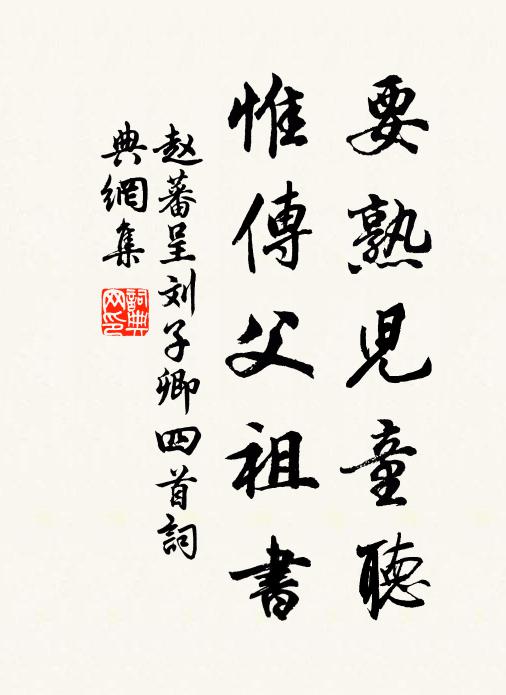 要熟児童聴
惟傳父祖書
赵蕃呈刘子卿四首詞
典網集
詞典网印